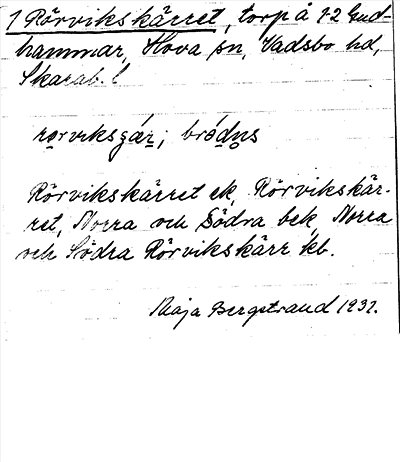 1 Rörvikskärret, torp å 1-2 Gud-
hammar, Hova sn, Vadsbo hd,
Skarab. l
rorviksgár; brǿdus
Rörvikskärret ek, Rörvikskär-
ret, Norra och Södra bek, Norra
och Södra Rörvikskärr kb.
Maja Bergstrand 1937.